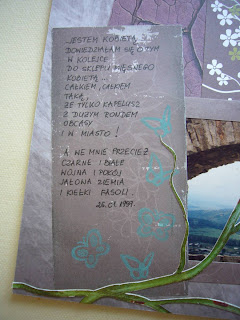 ...JESTEM KOBIETĄ...
DOWIEDZIAŁAM SIĘ O TYM
W KOLEJCE
DO SKLEPU MIĘSNEGO
KOBIETĄ...
CAŁKIEM, CAŁKIEM
TAKĄ,
ŻE TYLKO KAPELUSZ
Z DUŻYM RONDEM
OBCASY
I W MIASTO!
A WE MNIE PRZECIEŻ
CZARNE I BIAŁE
WOJNA I POKÓJ
JAŁOWA ZIEMIA
I KIEŁKI FASOLI.
26.01.1989.